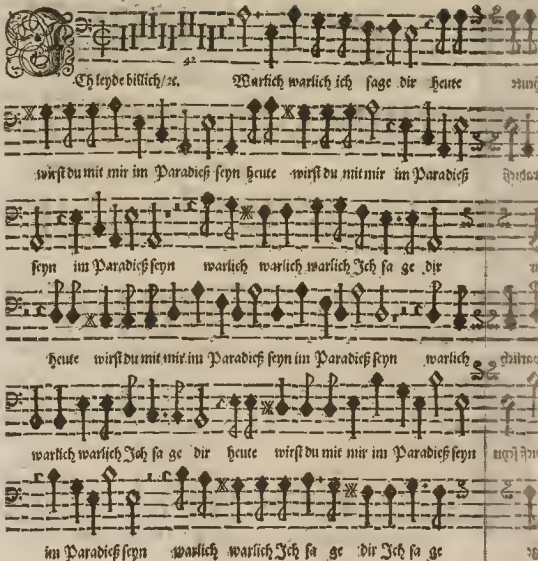 42
Ch leyde billich/ ꝛc. Warlich warlich ich sage dir heute
wirst du mit mir im Paradieß seyn heute wirst du mit mir im Paradieß
seyn im Paradieß seyn warlich warlich warlich Ich sa ge dir
heute wirst du mit mir im Paradieß seyn im Paradieß seyn warlich
warlich warlich Ich sa ge dir heute wirst du mit mir im Paradieß seyn
im Paradieß seyn warlich warlich Ich sa ge dir Ich sa ge